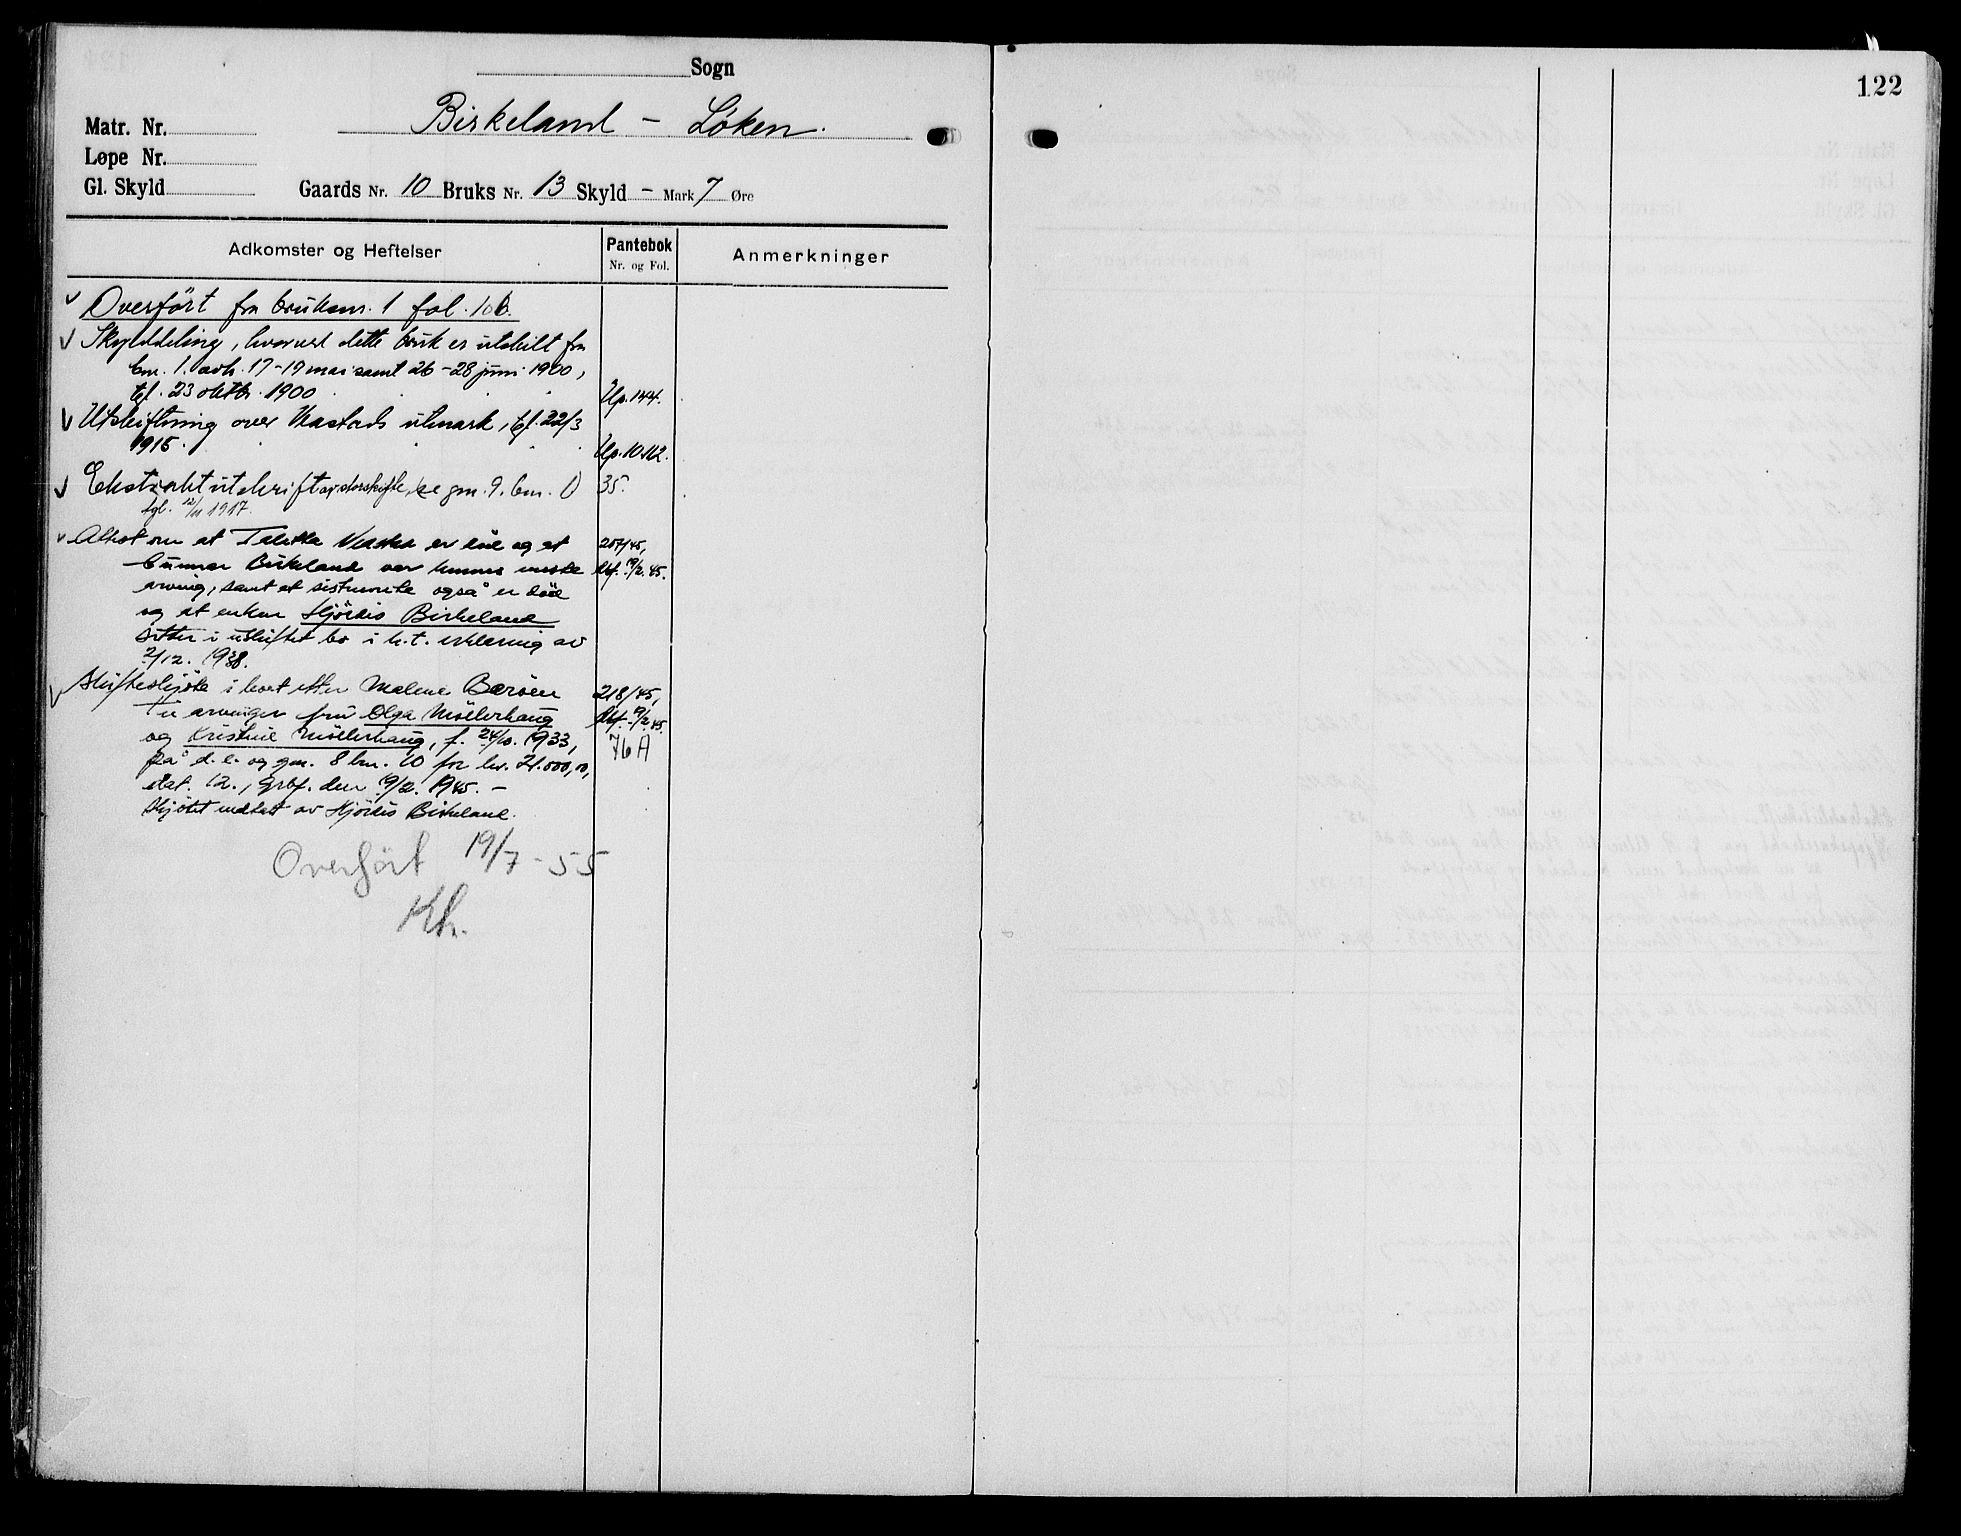 Sogn
122
Birkeland - Løken.
Matr. Nr.
Løpe Nr.
Gl. Skyld Gaards Nr. 10 Bruks Nr. 13 Skyld - Mark 7 Øre
Adkomster og Heftelser Pantebok Nr. og Fol. Anmerkninger
Overført fra bruksnr. 1 fol. 10b.
Skylddeling, hvorved dette bruk er utskilt fra
bnr. 1. avh. 17-19 mai samt 26-28 juni 1900,
tgl. 23 oktbr. 1900 Up. 144.
Utskiftning over utmark, tgl. 22/3
1915. Up. 10.112.
Ekstraktutskrift av storskifte, se gnr. 9. bnr. 1) 35.
tgl. 12/11 1917.
Attest om at er død og at 207/45,
Gunnar Birkeland var hennes eneste 19/2.45.
arving, samt at sistnevnte også er død
og at enken Hjördis Birkeland
sitter i uskiftet bo i h.t. erklæring av
2/12. 1938.
Skifteskjøte i boet etter Malene Barøen 218/45,
til arvingen fru Olga Möllerhaug 19/2.45.
og Kristine Möllerhaug, f. 24/10. 1933, 76 A
på d.e. og gnr. 8 bnr. 10 for kr. 21.000,00,
dat. 12., grbf. den 19/2. 1945. -
Skjötet medtatt av Hjördis Birkeland.
Overført 19/7 - 55
Kh.